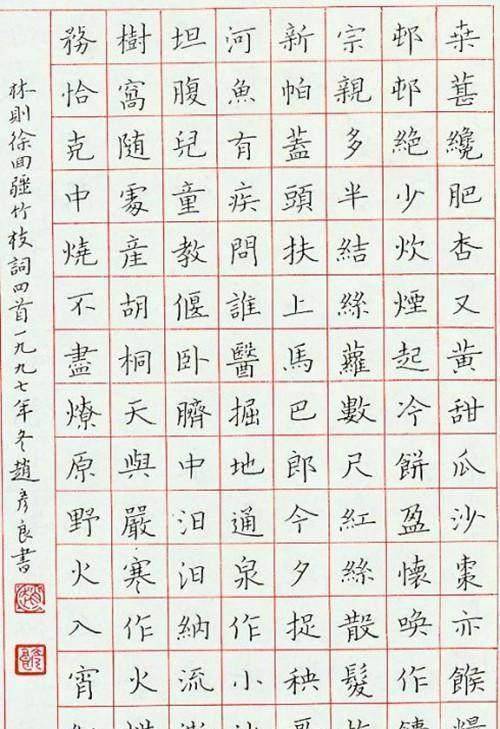 桒葚纔肥杏又黃甜瓜沙棗亦餱
邨邨絶少炊煙起冷餅盈懷喚作
宗親多半結絲蘿數尺紅絲散髮
新帕蓋頭扶上馬巴郎今夕捉秧
河魚有疾問誰醫掘地通泉作小
坦腹兒童教偃臥臍中汩汩納流
樹窩隨處產胡桐天與嚴寒作火
務恰克中燒不盡燎原野火入宵
林則徐回疆竹枝詞四首一九九七年冬趙彥良書